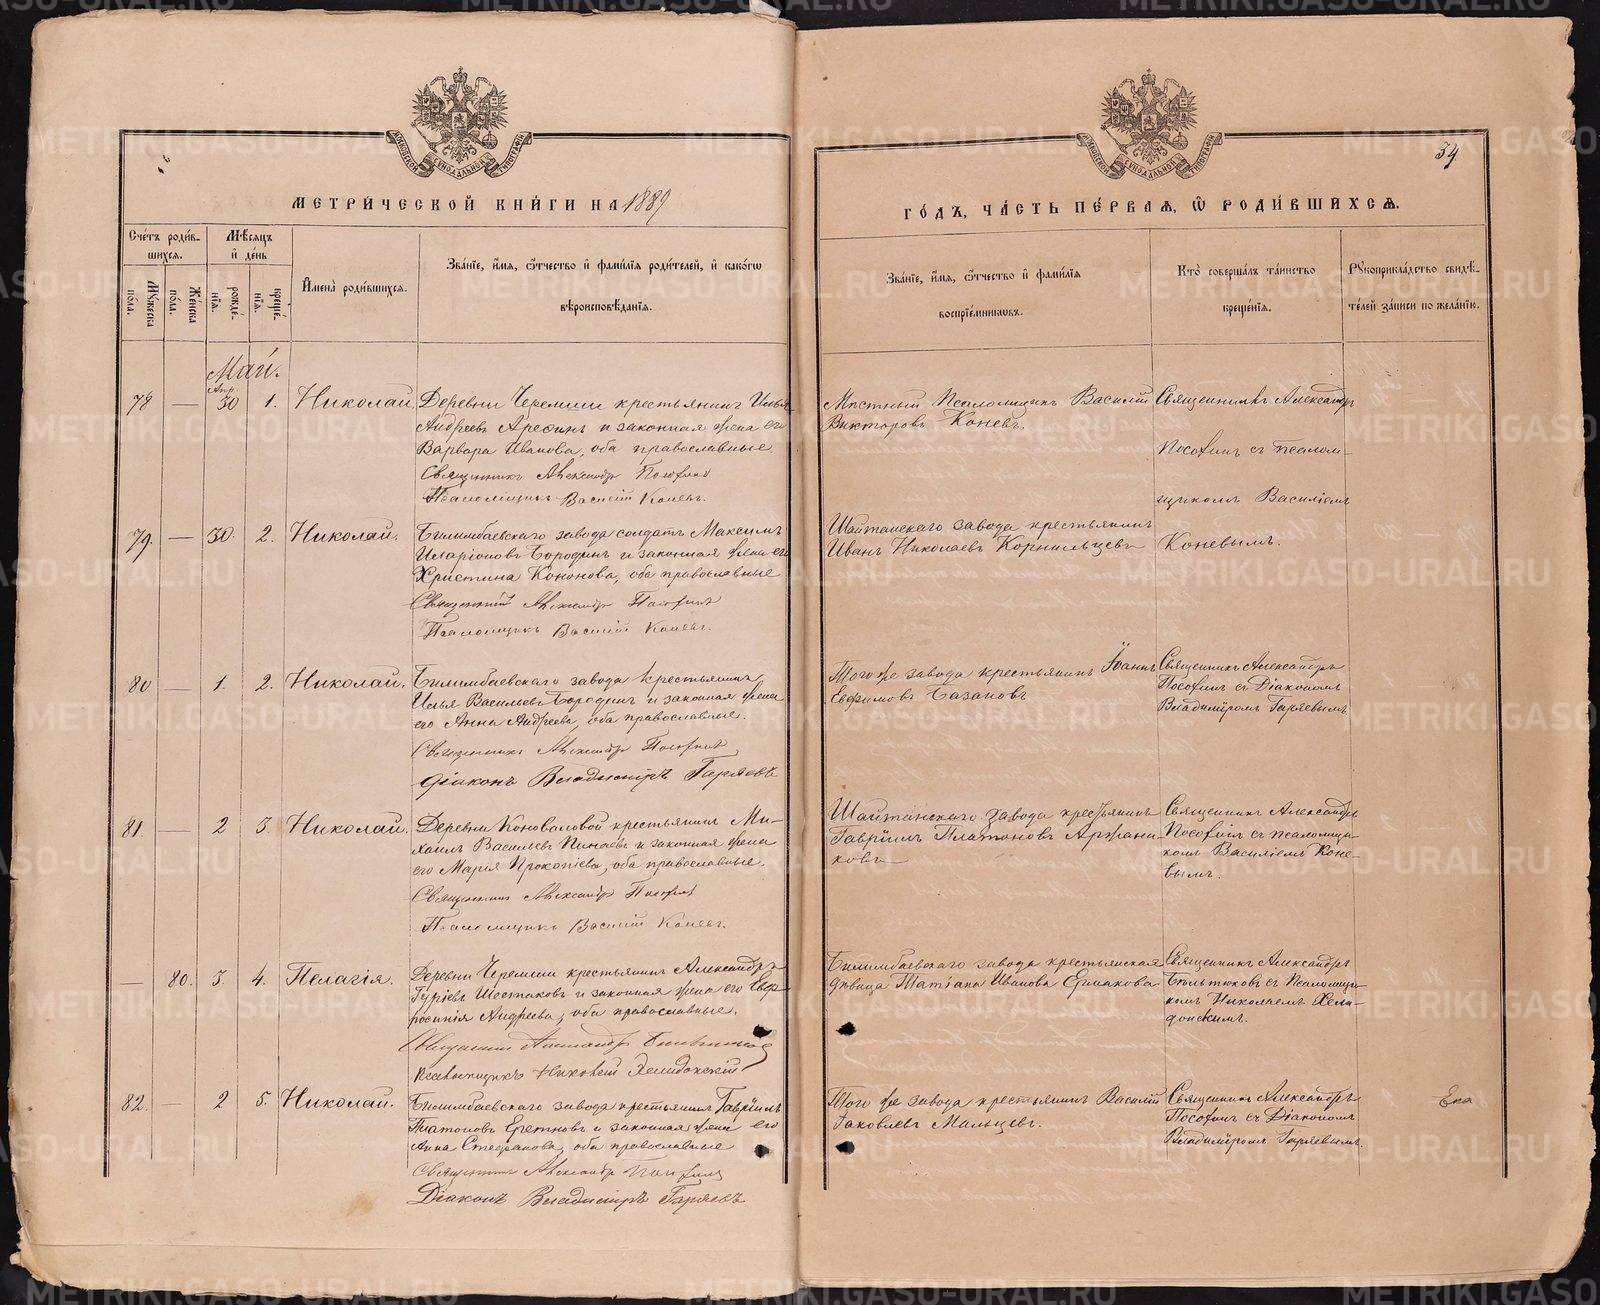 МОСКОВСКОЙ СѴНОДАЛЬНОЙ ТИПОГРАФІИ
МЕТРИ́ЧЕСКОЙ КНИ́ГИ НА 1889
Сче́тъ роди́в-
шихсѧ.
Мѣ́сѧцъ
и҆ де́нь
Мꙋ́жеска
по́ла.
Же́нска
по́ла.
рожде́-
нїѧ.
креще́-
нїѧ.
И҆мена̀ роди́вшихсѧ.
Зва́нїе, и҆́мѧ, ѻ҆́тчество и҆ фами́лїѧ роди́телей, и҆ како́гѡ
вѣроисповѣ́данїѧ.
Май.
78 — Апр. 30 1. Николай Деревни Черемши крестьянинъ Илья
Андреевъ Аресинъ и законная жена его
Варвара Иванова, оба православные.
Священникъ Александръ
Псаломщикъ Василій Коневъ.
79. — 30. 2. Николай. Билимбаевскаго завода солдатъ Максимъ
Иларіоновъ Бородинъ и законная жена его
Христина Кононова, оба православные
Священникъ Александръ
Псаломщикъ Василій Коневъ.
80 — 1. 2. Николай. Билимбаевскаго завода крестьянинъ
Илья Васильевъ Бородинъ и законная жена
его Анна Андреева, оба православные.
Священникъ Александръ
Діаконъ Владиміръ Гаряевъ
81. — 2 3. Николай. Деревни Коноваловой крестьянинъ Ми-
хаилъ Васильевъ Пинаевъ и законная жена
его Марія Прокопіева, оба православные.
Священникъ Александръ
Псаломщикъ Василій Коневъ.
— 80. 3. 4. Пелагія. Деревни Черемши крестьянинъ Александръ
Гуріевъ Шестаковъ и законная жена его Евф-
росинія Андреева, оба православные.
Священникъ Александръ
Псаломщикъ Николай Хелидонскій
82. — 2 5. Николай. Билимбаевскаго завода крестьянинъ Гавріилъ
Платоновъ Еретновъ и законная жена его
Анна Стефанова, оба православные
Священникъ Александръ
Діаконъ Владиміръ Гаряевъ
54
МОСКОВСКОЙ СѴНОДАЛЬНОЙ ТИПОГРАФІИ
ГО́ДЪ, ЧА́СТЬ ПЕ́РВАѦ, Ѡ҆ РОДИ́ВШИХСѦ.
Зва́нїе, и҆́мѧ, ѻ҆́тчество и҆ фами́лїѧ
воспрїе́мникѡвъ.
Кто̀ соверша́лъ та́инство
креще́нїѧ.
Рꙋкоприкла́дство свидѣ́-
телей за́писи по жела́нїю.
Мѣстный Псаломщикъ Василій
Викторовъ Коневъ.
Священникъ Александръ
съ псалом-
щикомъ Василіемъ
Коневымъ.
Шайтанскаго завода крестьянинъ
Иванъ Николаевъ Корнильцевъ
Того же завода крестьянинъ Іоаннъ
Евфимовъ Базановъ
Священникъ Александръ
съ Діакономъ
Владиміромъ Гаряевымъ.
Шайтанскаго завода крестьянинъ
Гавріилъ Платоновъ Аржани-
ковъ —
Священникъ Александръ
съ псаломщи-
комъ Василіемъ Коне-
вымъ.
Билимбаевскаго завода крестьянская
дѣвица Татіана Иванова Ермакова
Священникъ Александръ
съ Псаломщи-
комъ Николаемъ Хели-
донскимъ.
Того же завода крестьянинъ Василій
Іаковлевъ Мальцевъ.
Священникъ Александръ
съ Діакономъ
Владиміромъ Гаряевымъ.
METRIKI.GASO-URAL.RU